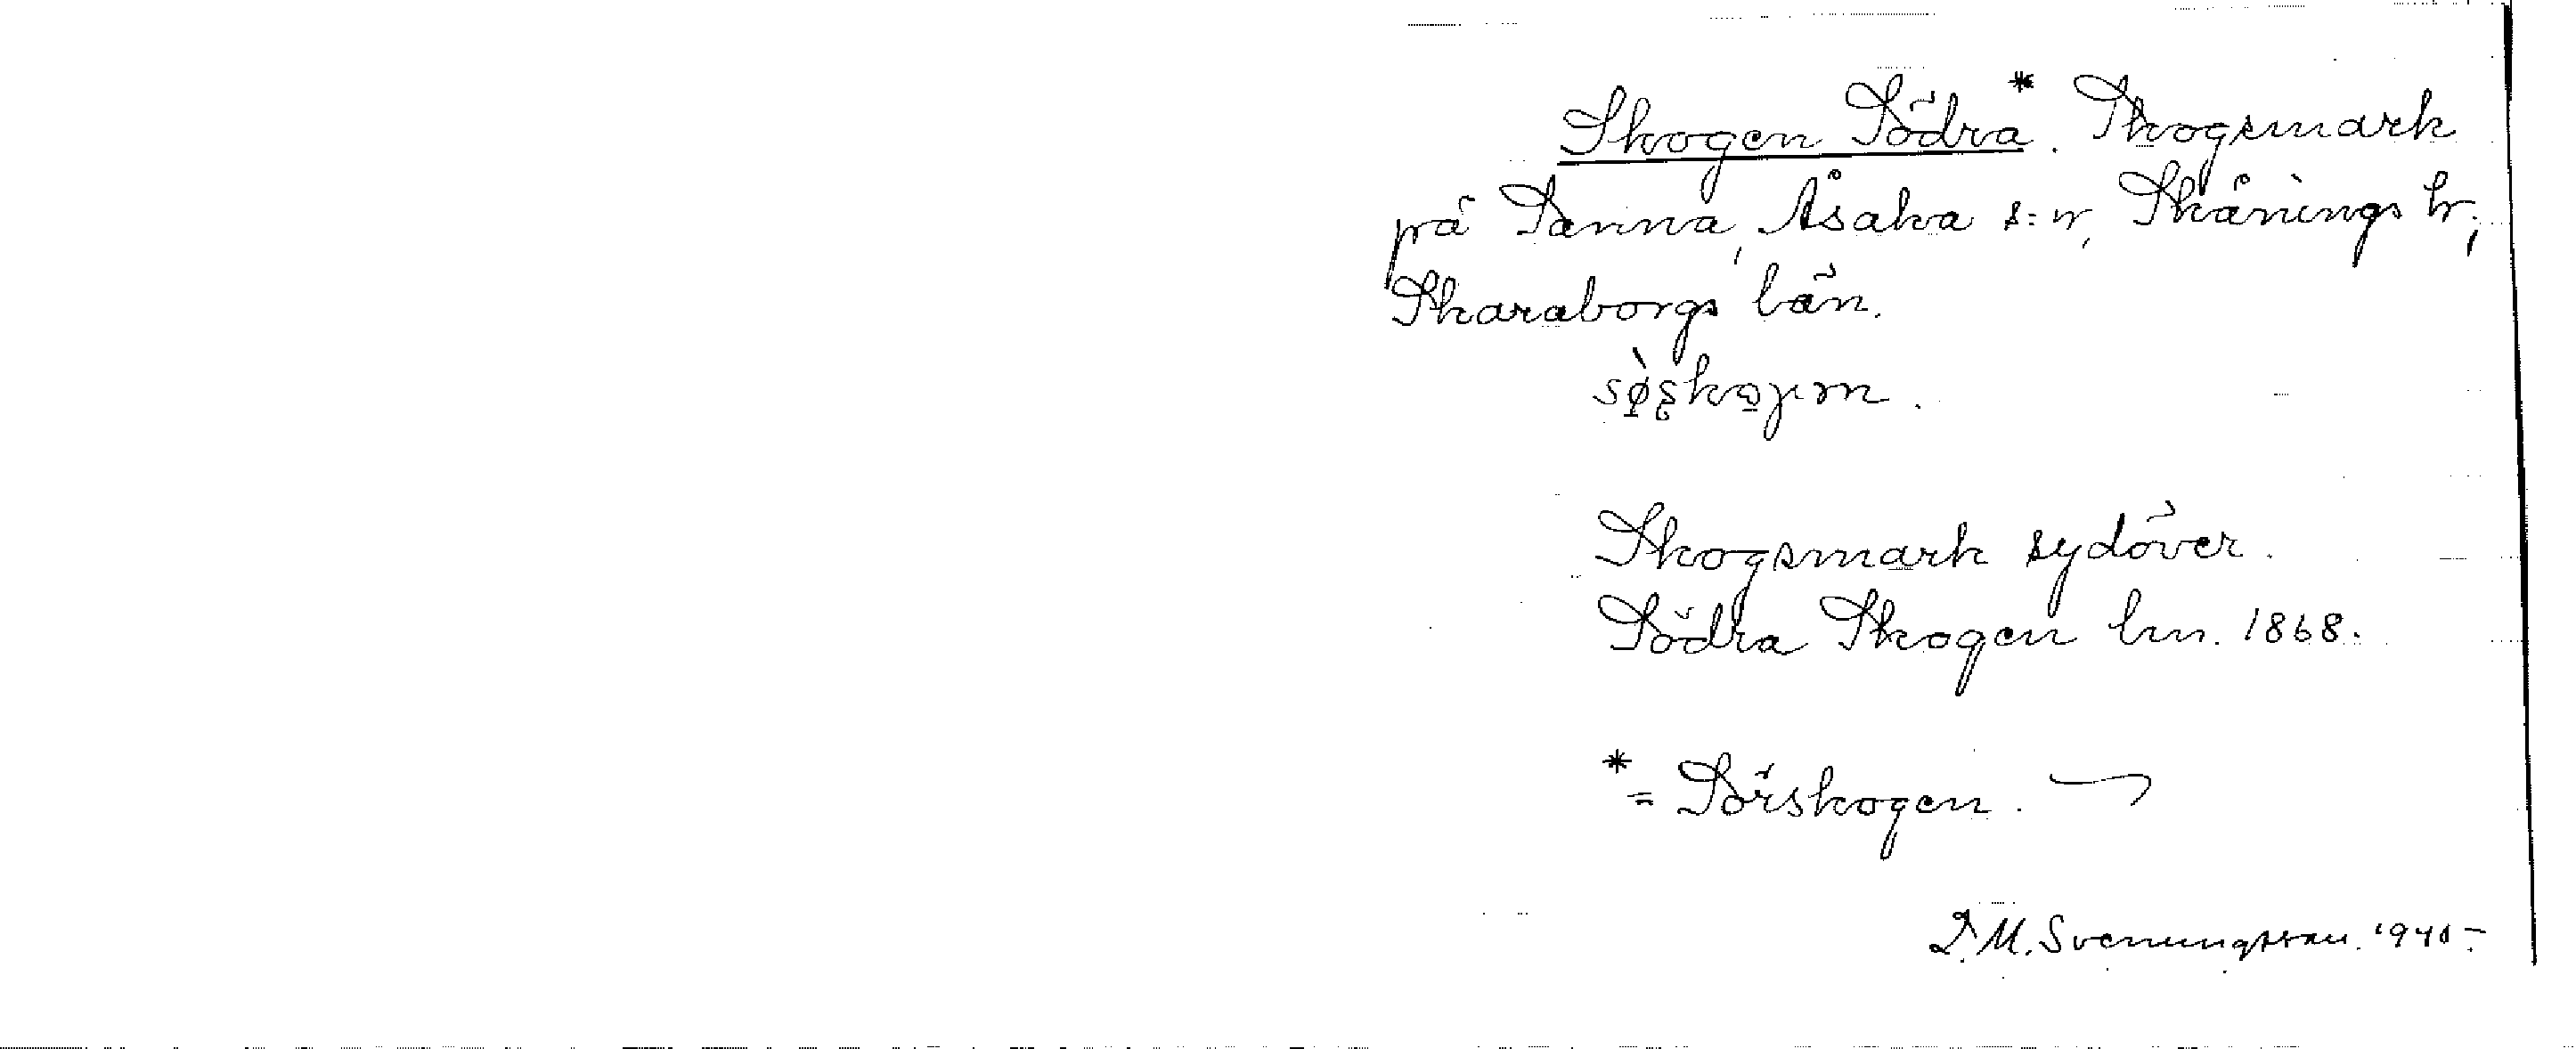 Skogen Södra*. Skogsmark
på Sanna, Åsaka s:n, Skånings hr,
Skaraborgs län.
Skogsmark sydöver.
Södra Skogen lm. 1868.
* = Sörskogen.
D. M. Svenungsson. 1940-